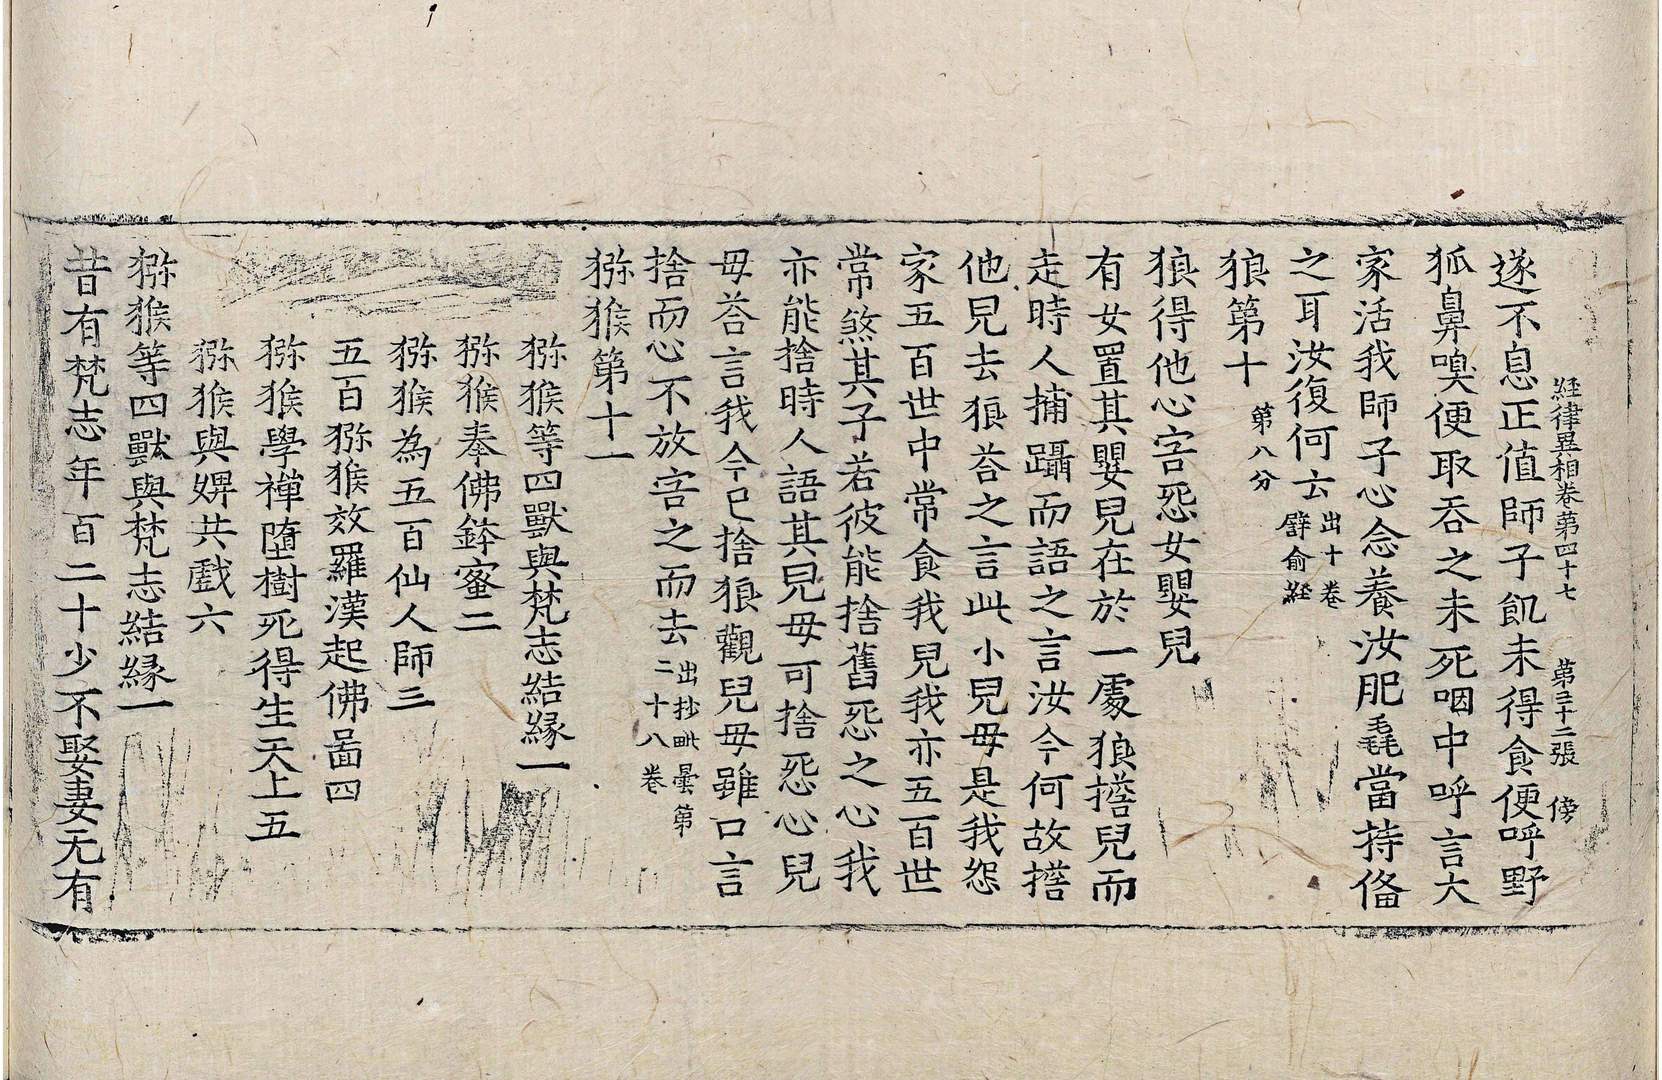 経律異相卷第四十七 第三十二張 傍
遂不息正值師子飢未得食便呼野
狐鼻嗅便取吞之未死咽中呼言大
家活我師子心念養汝肥毳當持俻
之耳汝復何云出十卷譬喻經
狼第十第八分
狼得他心害惡女嬰兒
有女置其嬰兒在於一處狼擔兒而
走時人捕躡而語之言汝今何故擔
他兒去狼荅之言此小兒母是我怨
家五百世中常食我兒我亦五百世
常煞其子若彼能捨舊惡之心我
亦能捨時人語其兒母可捨惡心兒
母荅言我今已捨狼觀兒母雖口言
捨而心不放害之而去出抄毗曇第二十八卷
猕猴第十一
猕猴等四獸與梵志結縁一
猕猴奉佛鉢蜜二
猕猴為五百仙人師三
五百猕猴效羅漢起佛啚四
猕猴學禪墮樹死得生天上五
猕猴與婢共戲六
猕猴等四獸與梵志結縁一
昔有梵志年百二十少不娶妻无有